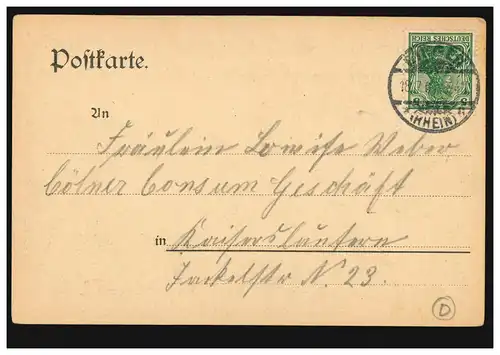 DEUTSCHES REICH
BINGEN
(RHEIN)
Postkarte.
An
Fräulein Lowise Weber
Cölner Consum Geschäft
in Kaiserslautern
Fackelstr N. 23.
D